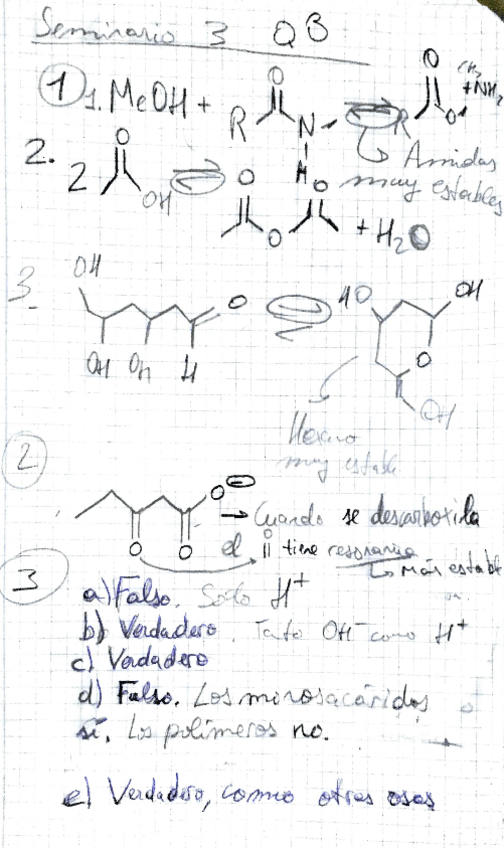 Seminario 3 QB
① 1. MeOH + R O N H ⇌ R O O + CH3 NH2
↳ Amidas muy estables
2. 2 O OH ⇌ O O O + H2O
3. OH OH OH H O ⇌ HO OH O OH
Hexano muy estable
② O O O⊖ → Cuando se descarboxila
el O tiene resonancia
↳ más estable
③ a) Falso. Solo H+
b) Verdadero. Tanto OH- como H+
c) Verdadero
d) Falso. Los minosacáridos
sí, Los polímeros no.
e) Verdadero, como otras osas